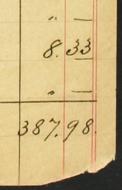 " —
8.33
" —
387.98.